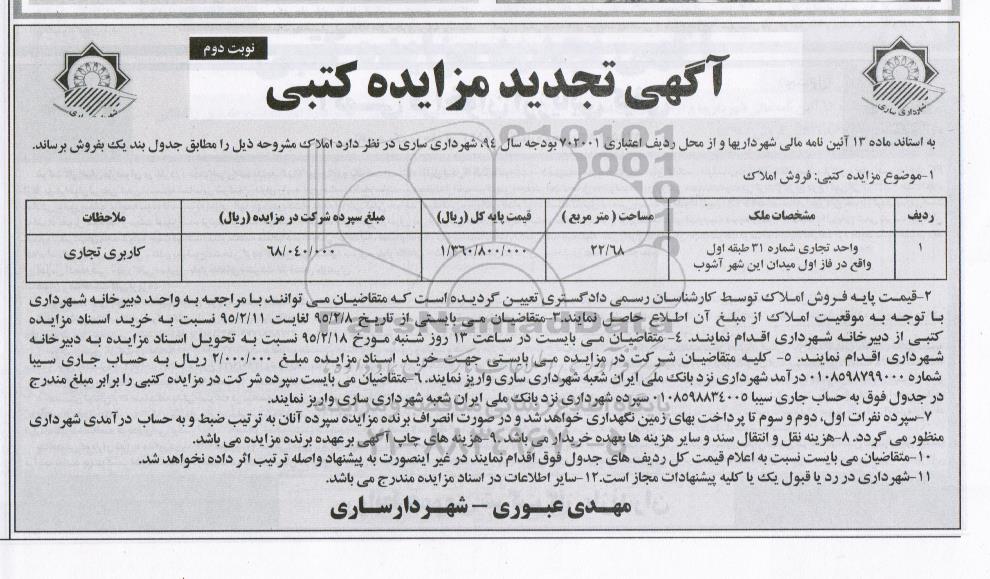 نوبت دوم
آگهی تجدید مزایده کتبی
شهرداری ساری
به استناد ماده ۱۳ آئین نامه مالی شهرداریها و از محل ردیف اعتباری ۷۰۲۰۰۱ بودجه سال ۹۴، شهرداری ساری در نظر دارد املاک مشروحه ذیل را مطابق جدول بند یک بفروش برساند.
۱-موضوع مزایده کتبی: فروش املاک
ردیف مشخصات ملک مساحت ( متر مربع ) قیمت پایه کل (ریال) مبلغ سپرده شرکت در مزایده (ریال) ملاحظات
۱ واحد تجاری شماره ۳۱ طبقه اول ۲۲/۶۸ ۱/۳۶۰/۸۰۰/۰۰۰ ۶۸/۰۴۰/۰۰۰ کاربری تجاری
واقع در فاز اول میدان ابن شهر آشوب
۲-قیمت پایه فروش املاک توسط کارشناسان رسمی دادگستری تعیین گردیده است که متقاضیان می توانند با مراجعه به واحد دبیرخانه شهرداری
با توجه به موقعیت املاک از مبلغ آن اطلاع حاصل نمایند.۳-متقاضیان می بایستی از تاریخ ۹۵/۲/۸ لغایت ۹۵/۲/۱۱ نسبت به خرید اسناد مزایده
کتبی از دبیرخانه شهرداری اقدام نمایند. ۴- متقاضیان می بایست در ساعت ۱۳ روز شنبه مورخ ۹۵/۲/۱۸ نسبت به تحویل اسناد مزایده به دبیرخانه
شهرداری اقدام نمایند. ۵- کلیه متقاضیان شرکت در مزایده می بایستی جهت خرید اسناد مزایده مبلغ ۲/۰۰۰/۰۰۰ ریال به حساب جاری سیبا
شماره ۰۱۰۸۵۹۸۷۹۹۰۰۰ درآمد شهرداری نزد بانک ملی ایران شعبه شهرداری ساری واریز نمایند. ۶-متقاضیان می بایست سپرده شرکت در مزایده کتبی را برابر مبلغ مندرج
در جدول فوق به حساب جاری سیبا ۰۱۰۸۵۹۸۸۳۴۰۰۵ سپرده شهرداری نزد بانک ملی ایران شعبه شهرداری ساری واریز نمایند.
۷-سپرده نفرات اول، دوم و سوم تا پرداخت بهای زمین نگهداری خواهد شد و در صورت انصراف برنده مزایده سپرده آنان به ترتیب ضبط و به حساب درآمدی شهرداری
منظور می گردد. ۸-هزینه نقل و انتقال سند و سایر هزینه ها بعهده خریدار می باشد.۹-هزینه های چاپ آگهی برعهده برنده مزایده می باشد.
۱۰-متقاضیان می بایست نسبت به اعلام قیمت کل ردیف های جدول فوق اقدام نمایند در غیر اینصورت به پیشنهاد واصله ترتیب اثر داده نخواهد شد.
۱۱-شهرداری در رد یا قبول یک یا کلیه پیشنهادات مجاز است.۱۲-سایر اطلاعات در اسناد مزایده مندرج می باشد.
مهدی عبوری – شهردار ساری
ParsNamadData